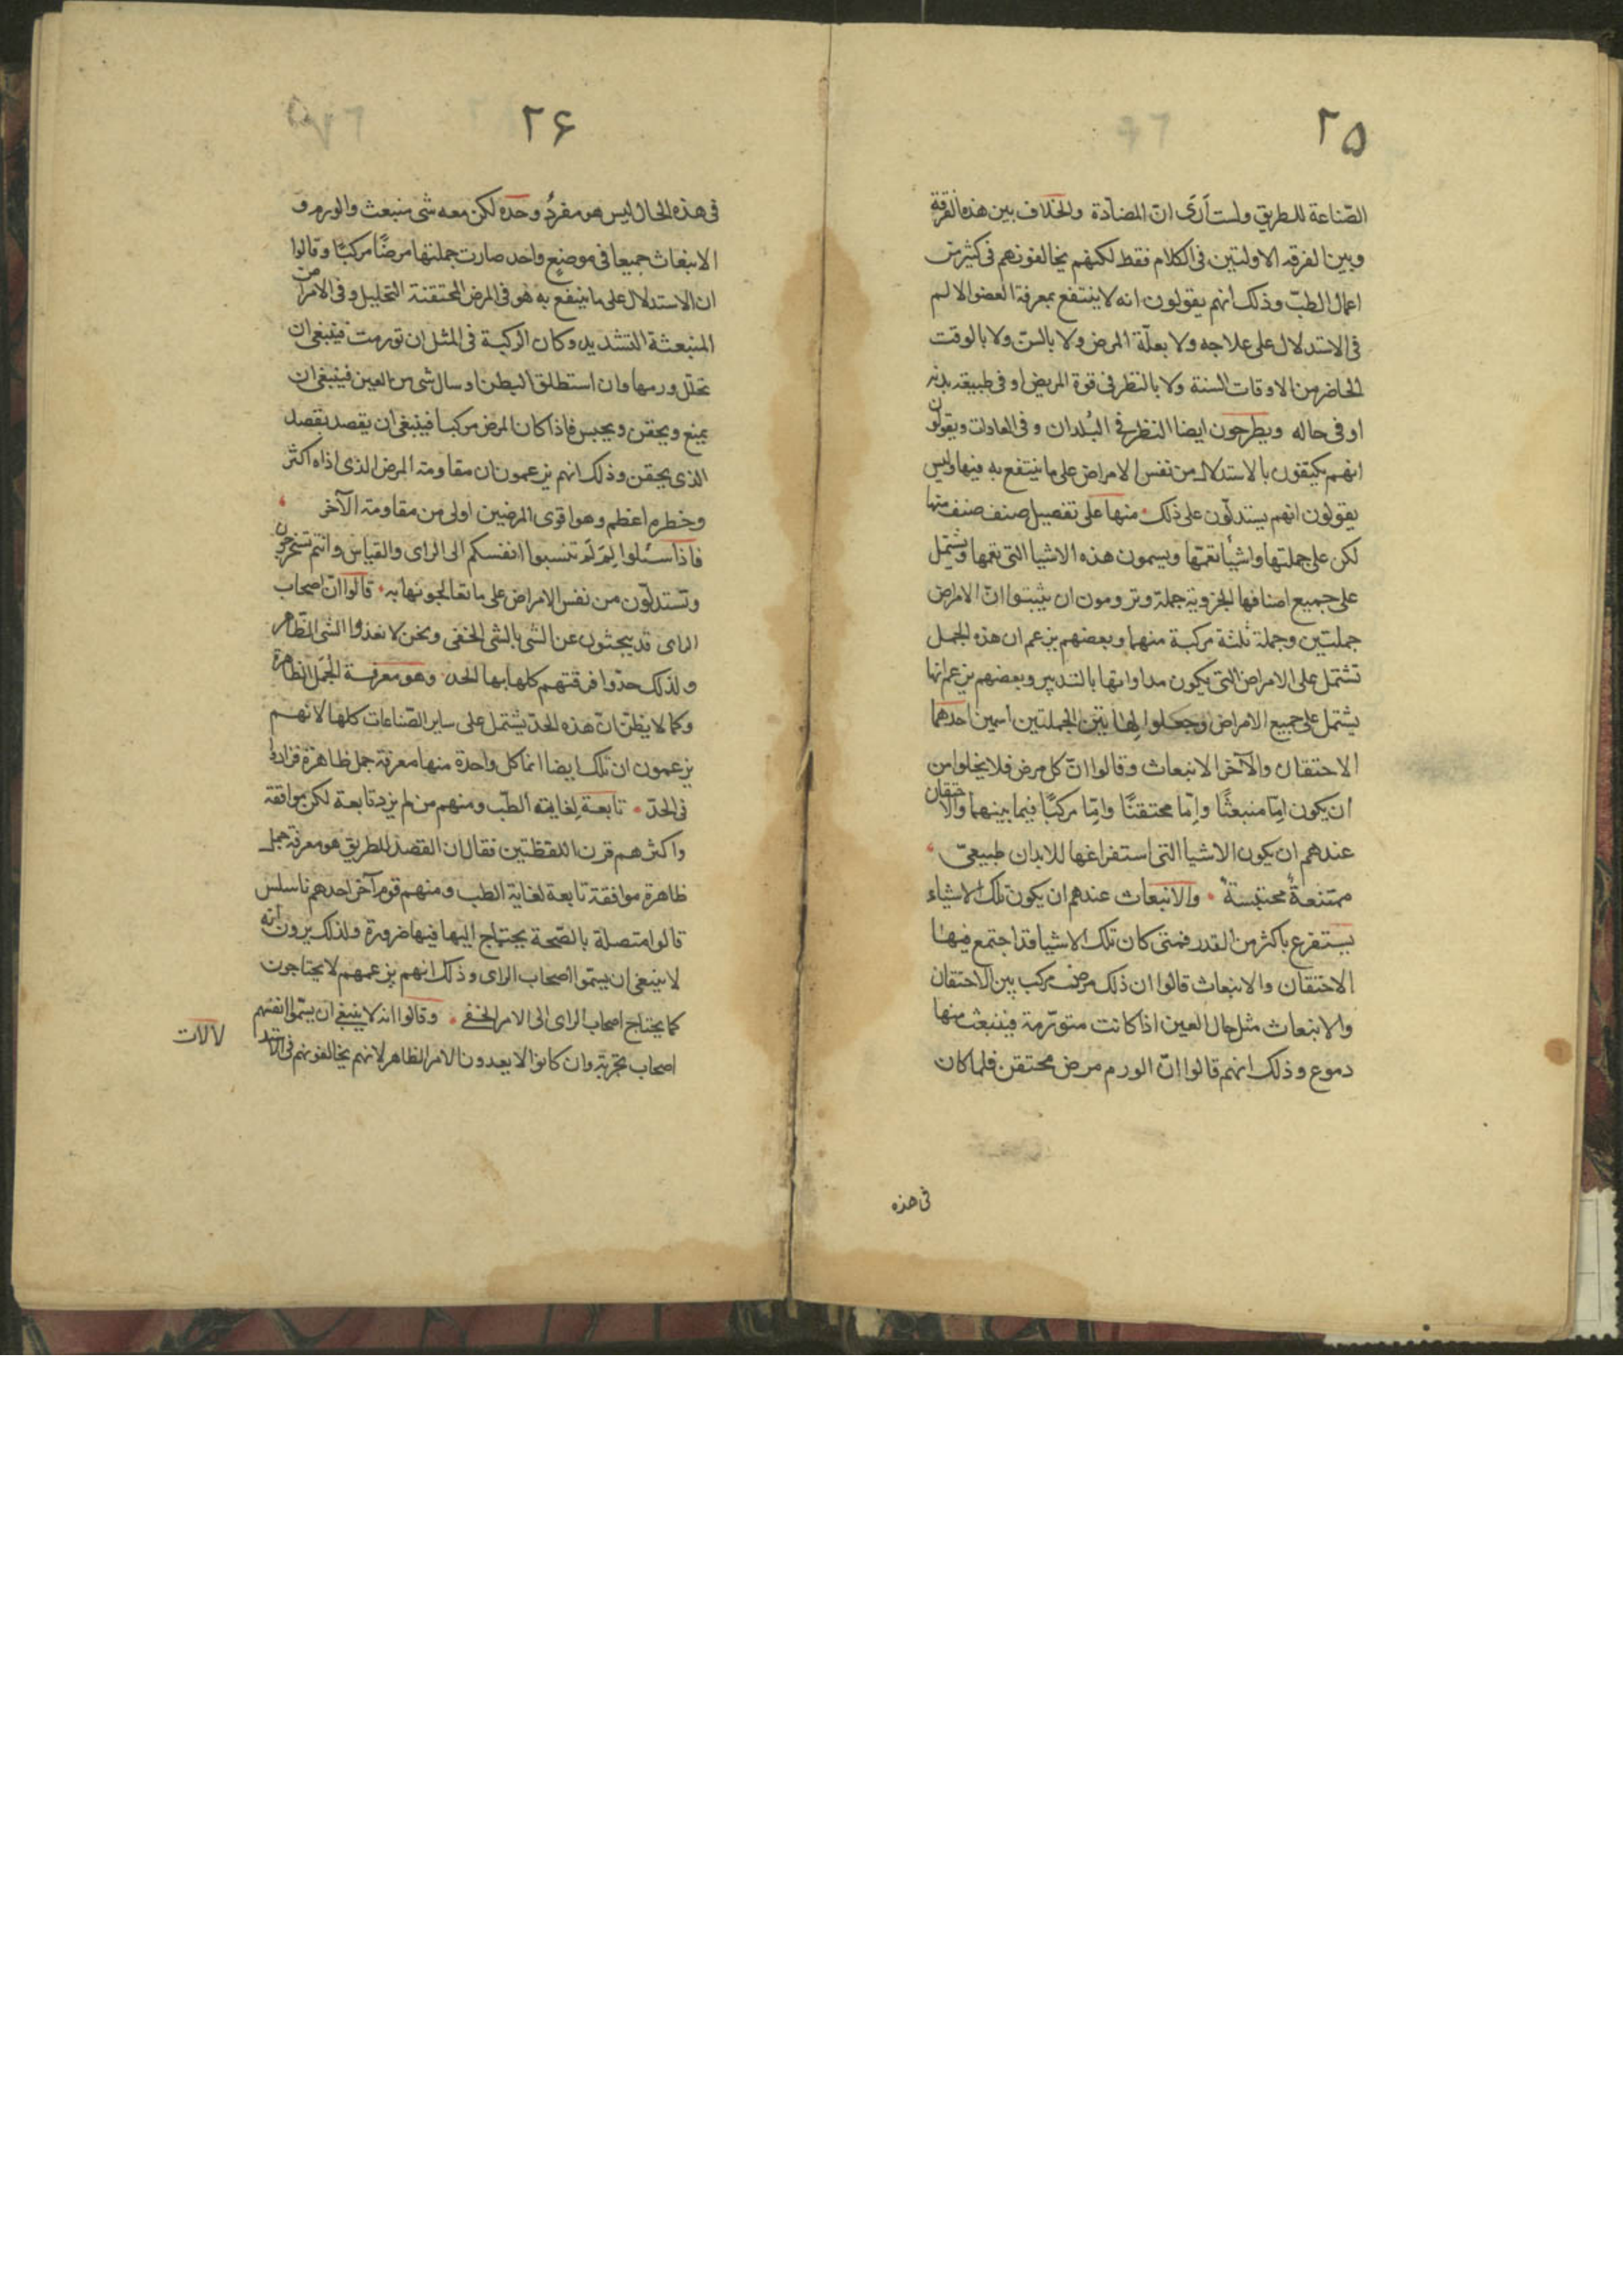 ٢٥
الصّناعة للطريق ولست أرَى انّ المضادّة والخلاف بين هذه الفرقة
وبين الفرقة الاولتين فى الكلام فقط لكنهم يخالفونهم فى كثير من
اعمال الطبّ وذلك انهم يقولون انه لا ينتفع بمعرفة العضو الالم
فى الاستدلال على علاجه ولا بعلّة المرض ولا بالسنّ ولا بالوقت
الحاضر من الاوقات السنة ولا بالنظر فى قوة المريض او فى طبيعة بدنه
او فى حاله ويطرحون ايضا النظر فى البُلدان وفى العادات ويقولون
انهم يكتفون بالاستدلال من نفس الامراض على ما ينتفع به فيها وليس
يقولون انهم يستدلّون على ذلك منها على تفصيل صنف صنف منها
لكن على جملتها واشيأ تعمّها ويسمون هذه الاشيا التى تعمها وتشتمل
على جميع اصنافها الجزوية جملة وترومون ان يثبتوا انّ الامراض
جملتين وجملة ثلثة مركبة منهما وبعضهم يزعم ان هذه الجمل
تشتمل على الامراض التى يكون مداواتها بالتدبير وبعضهم يزعم انها
يشتمل على جميع الامراض وجعلوا لهاتين الجملتين اسمين احدهما
الاحتقان والآخر الانبعاث وقالوا انّ كل مرض فلا يخلوا من
ان يكون امّا منبعثًا وامّا محتقنًا وامّا مركبًا فيما بينهما والاحتقان
عندهم ان يكون الاشيا التى استفراغها للابدان طبيعىّ
ممتنعةً محتبسةً والانبعاث عندهم ان يكون تلك الاشياء
يستفرغ باكثر من القدر فمتى كان تلك الاشيا قد اجتمع فيها
الاحتقان والانبعاث قالوا ان ذلك مرض مركب بين الاحتقان
والانبعاث مثل حال العين اذا كانت متورّمة فينبعث منها
دموع وذلك انهم قالوا انّ الورم مرض محتقن فلما كان
فى هذه
٢۶
فى هذه الحال ليس هو مفردُ وحده لكن معه شى منبعث والورم و
الانبعاث جميعا فى موضعٍ واحد صارت جملتها مرضًا مركبًا وقالوا
ان الاستدلال على ما ينتفع به هو فى المرض المحتقنة التحليل وفى الامراض
المنبعثة التشديد وكان الركبة فى المثل ان تورمت فينبغى ان
تحلّل ورمها وان استطلق البطن او سال شى من العين فينبغى ان
يمنع ويحقن ويحبس فاذا كان المرض مركبا فينبغى ان يقصد بقصد
الذى يحقن وذلك انهم يزعمون ان مقاومة المرض الذى اذاه اكثر
وخطره اعظم وهو اقوى المرضين اولى من مقاومة الآخر
فاذا سئلوا لِمَ لَم تنسبوا انفسكم الى الراى والقياس وانتم تستخرجون
وتستدلّون من نفس الامراض على ما تعالجونها به قالوا انّ اصحاب
الراى قد يبحثون عن الشى بالشى الخفى ونحن لا نعدوا الشى الظاهر
ولذلك حدّوا فرقتهم كلها بهذا الحد وهو معرفة الجمَل الظاهرة
وكما لا يظنّ انّ هذه الحدّ يشتمل على ساير الصّناعات كلها لانهم
يزعمون ان تلك ايضا انما كل واحدة منها معرفة جمل ظاهرة فزادوا
فى الحدّ تابعة لغاية الطبّ ومنهم من لم يزد تابعة لكن موافقة
واكثرهم قرن اللفظتين فقال ان القصد للطريق هو معرفة جمل
ظاهرة موافقة تابعة لغاية الطب ومنهم قوم آخر احدهم ثاسلس
قالوا متصلة بالصّحة يحتاج اليها فيها ضرورة ولذلك يرون انه
لا ينبغى ان يسمّوا اصحاب الراى وذلك انهم بزعمهم لا يحتاجون
كما يحتاج اصحاب الراى الى الامر الخفى وقالوا انه لا ينبغى ان يسمّوا انفسهم
اصحاب تجربة وان كانوا لا يعدون الامر الظاهر لانهم يخالفونهم فى الاستد
لالات